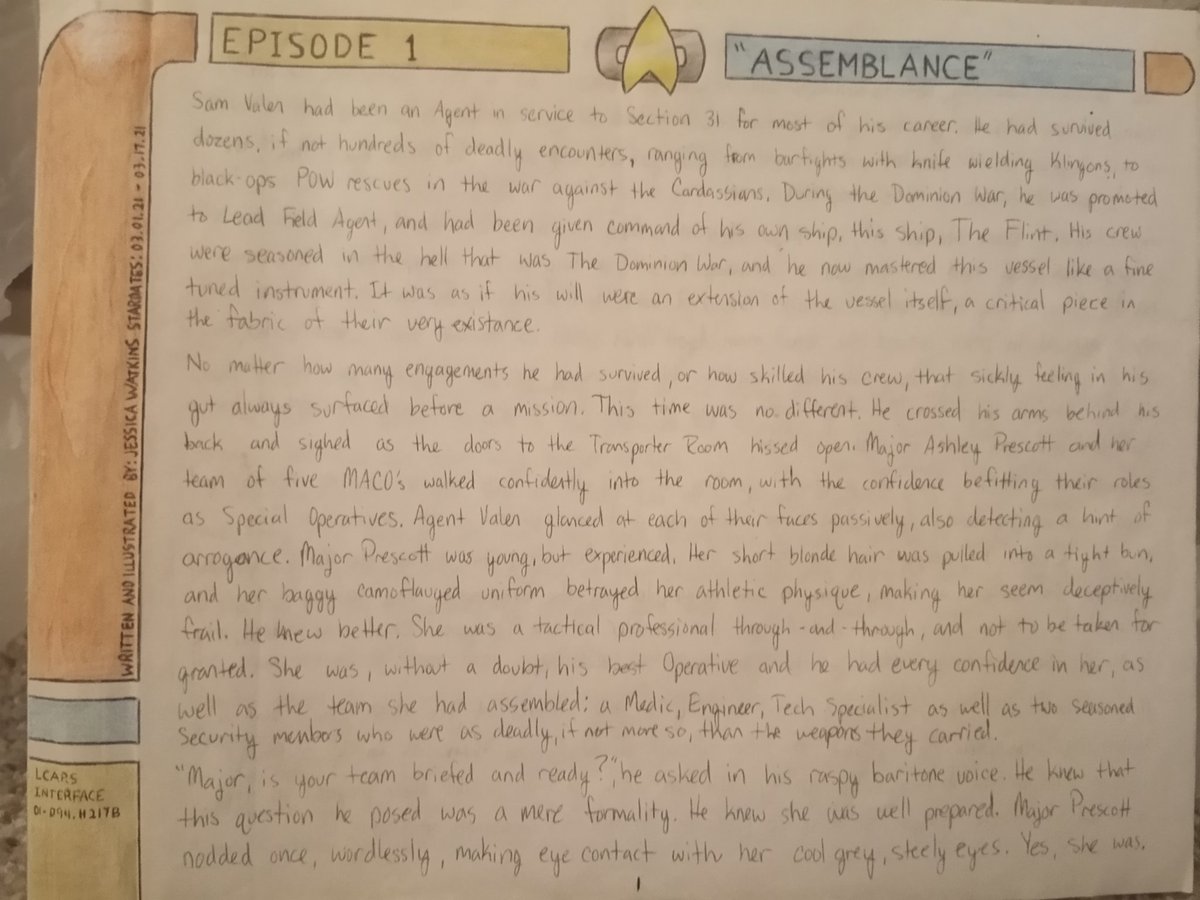 EPISODE 1
"ASSEMBLANCE"
WRITTEN AND ILLUSTRATED BY: JESSICA WATKINS STARDATES: 03.01.21 - 03.17.21
Sam Valen had been an Agent in service to Section 31 for most of his career. He had survived
dozens, if not hundreds of deadly encounters, ranging from barfights with knife wielding Klingons, to
black-ops POW rescues in the war against the Cardassians. During the Dominion War, he was promoted
to Lead Field Agent, and had been given command of his own ship, this ship, The Flint. His crew
were seasoned in the hell that was The Dominion War, and he now mastered this vessel like a fine
tuned instrument. It was as if his will were an extension of the vessel itself, a critical piece in
the fabric of their very existance.
No matter how many engagements he had survived, or how skilled his crew, that sickly feeling in his
gut always surfaced before a mission. This time was no different. He crossed his arms behind his
back and sighed as the doors to the Transporter Room hissed open. Major Ashley Prescott and her
team of five MACO's walked confidently into the room, with the confidence befitting their roles
as Special Operatives. Agent Valen glanced at each of their faces passively, also detecting a hint of
arrogance. Major Prescott was young, but experienced. Her short blonde hair was pulled into a tight bun,
and her baggy camoflauged uniform betrayed her athletic physique, making her seem deceptively
frail. He knew better. She was a tactical professional through-and-through, and not to be taken for
granted. She was, without a doubt, his best Operative and he had every confidence in her, as
well as the team she had assembled: a Medic, Engineer, Tech Specialist as well as two seasoned
Security members who were as deadly, if not more so, than the weapons they carried.
"Major, is your team briefed and ready?", he asked in his raspy baritone voice. He knew that
this question he posed was a mere formality. He knew she was well prepared. Major Prescott
nodded once, wordlessly, making eye contact with her cool grey, steely eyes. Yes, she was.
LCARS
INTERFACE
01-D94.H217B
1